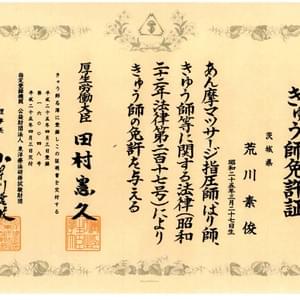 きゅう師免許証
茨城県
荒川素俊
昭和二十五年三月二十七日生
あん摩マツサージ指圧師、はり師、
きゆう師等に関する法律(昭和
二十二年法律第二百十七号)により
きゆう師の免許を与える
厚生労働大臣 田村憲久
きゆう師名簿に登録しこの証明書を交付する
平成二十五年四月三日登録
第一六〇〇四八号
平成二十五年四月三日交付
指定登録機関 公益財団法人 東洋療法研修試験財団
理事長